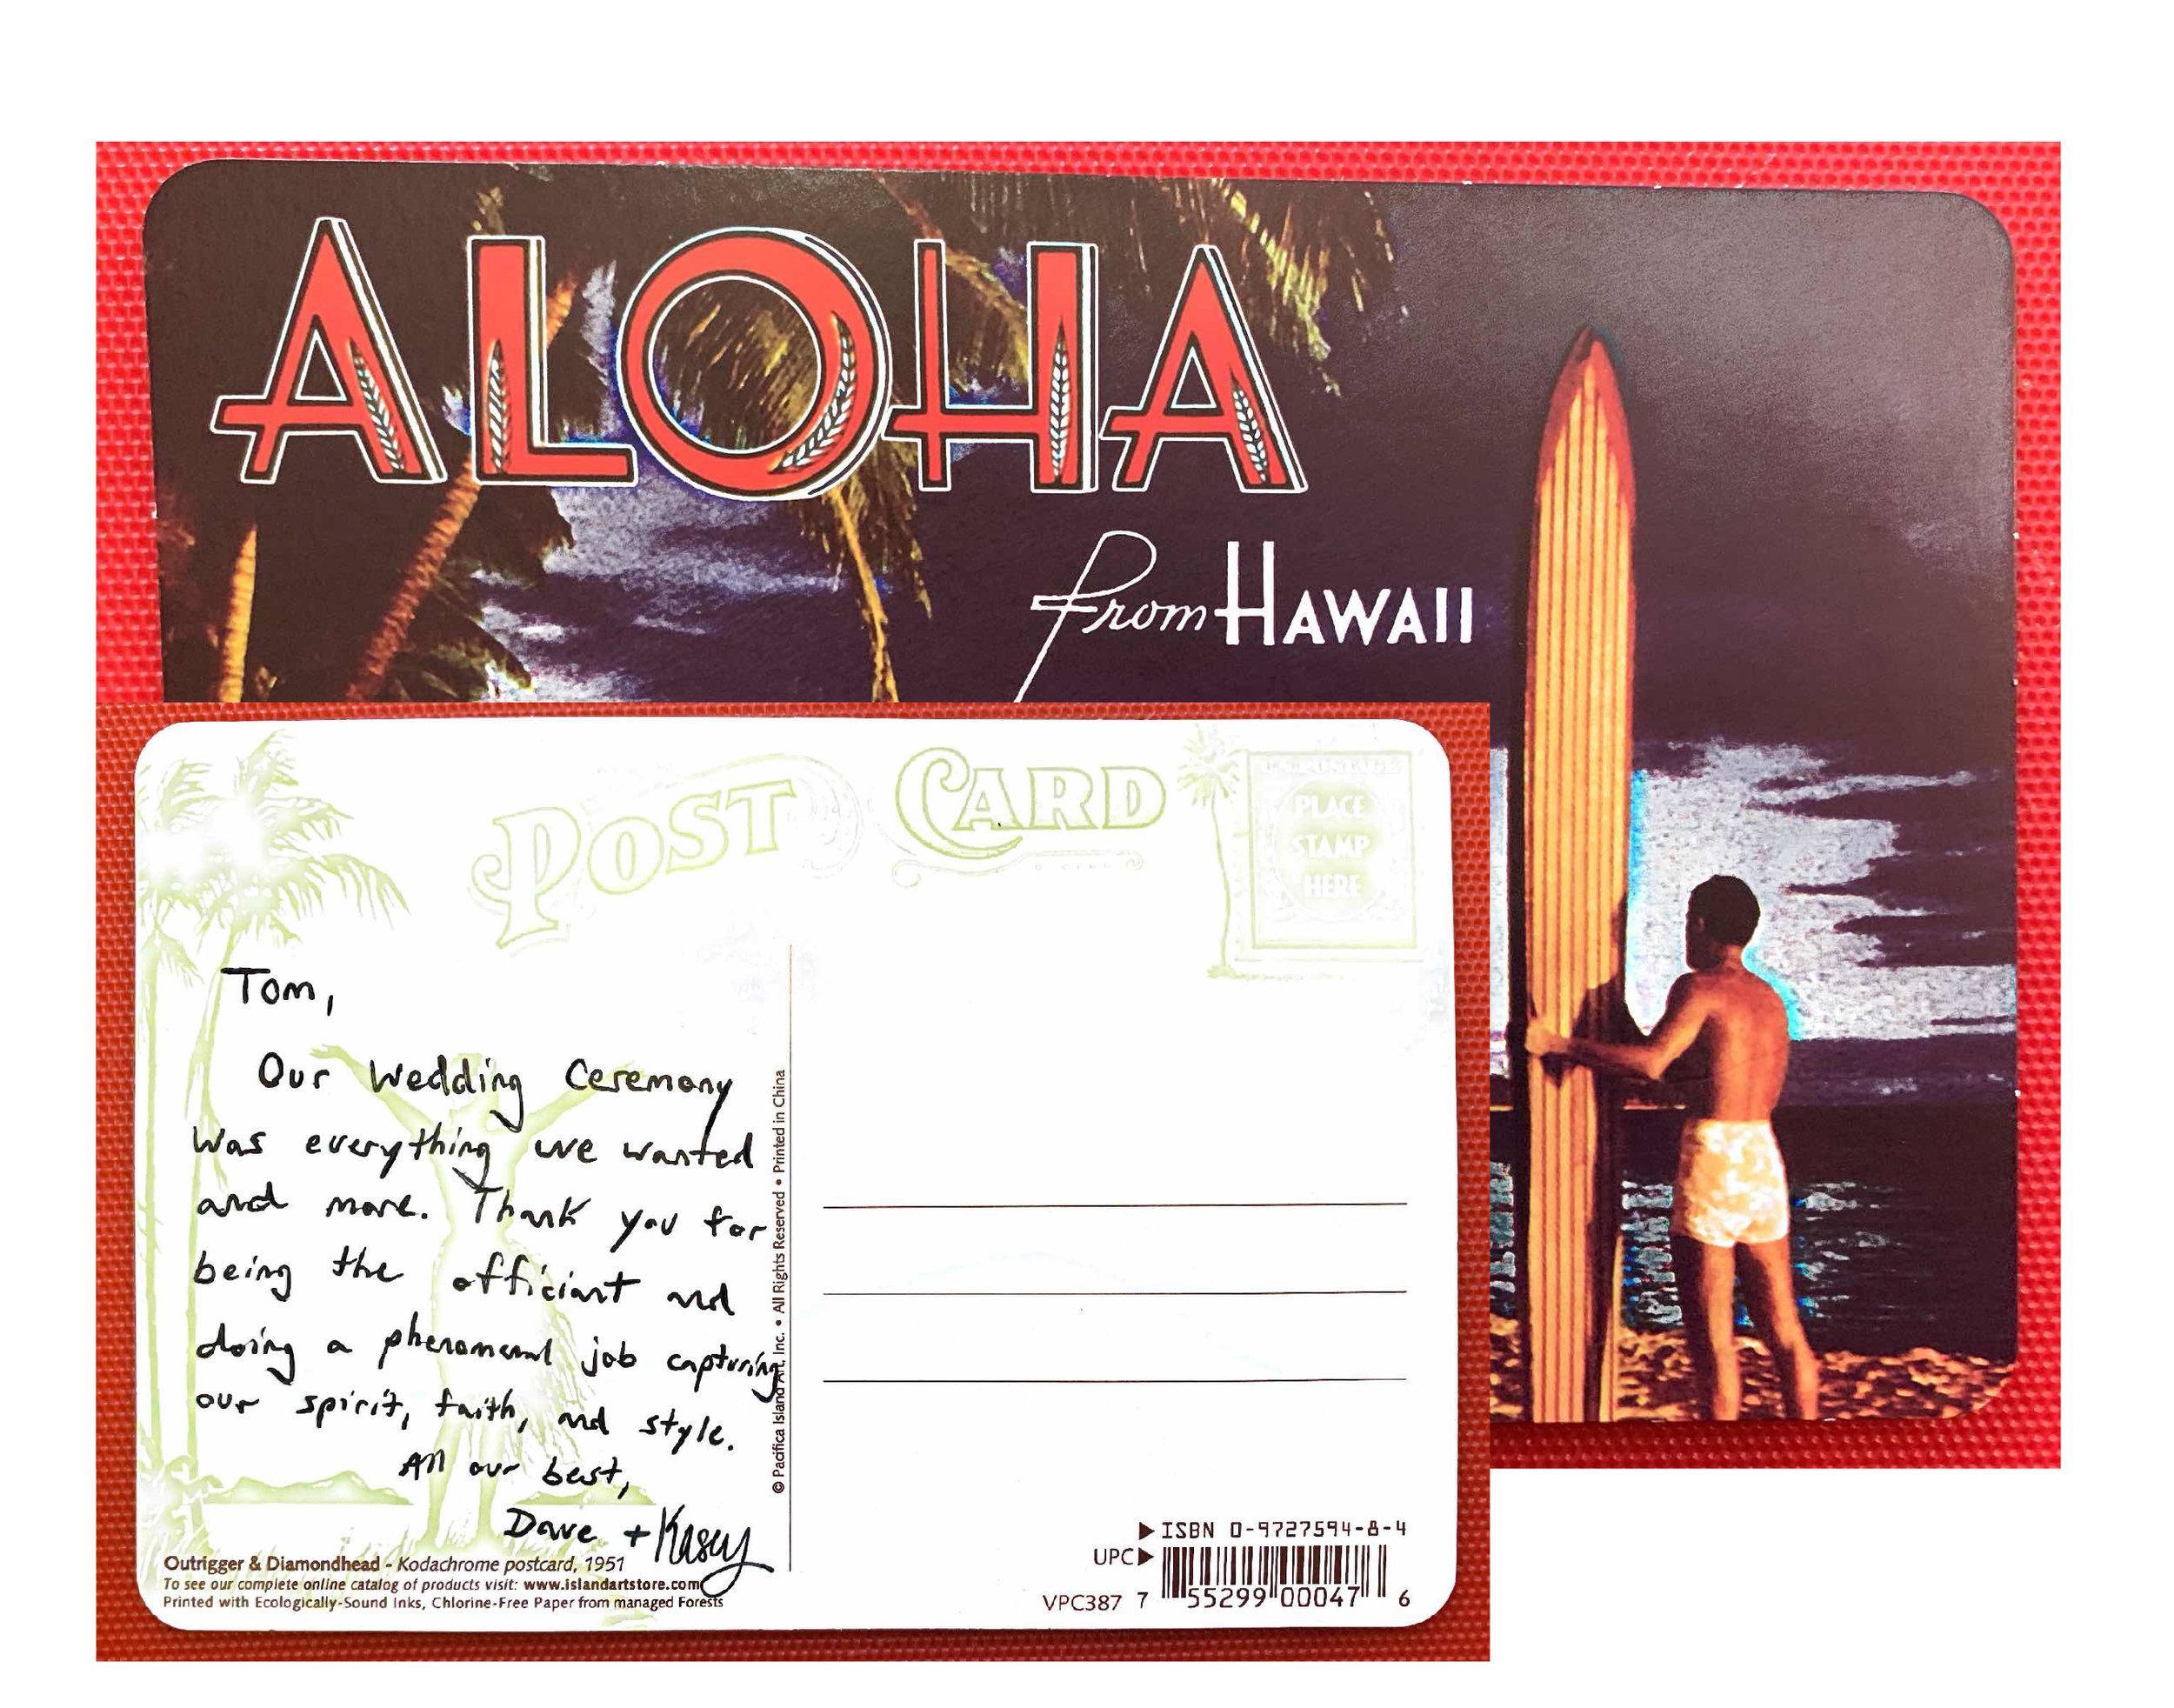 ALOHA
from HAWAII
POST CARD
U.S. POSTAGE
PLACE
STAMP
HERE
Tom,
Our Wedding Ceremony
was everything we wanted
and more. Thank you for
being the officiant and
doing a phenomenal job capturing
our spirit, faith, and style.
All our best,
Dave + Kasey
© Pacifica Island Art, Inc. • All Rights Reserved • Printed in China
Outrigger & Diamondhead - Kodachrome postcard, 1951
To see our complete online catalog of products visit: www.islandartstore.com
Printed with Ecologically-Sound Inks, Chlorine-Free Paper from managed Forests
ISBN 0-9727594-8-4
UPC
VPC387 7 55299 00047 6